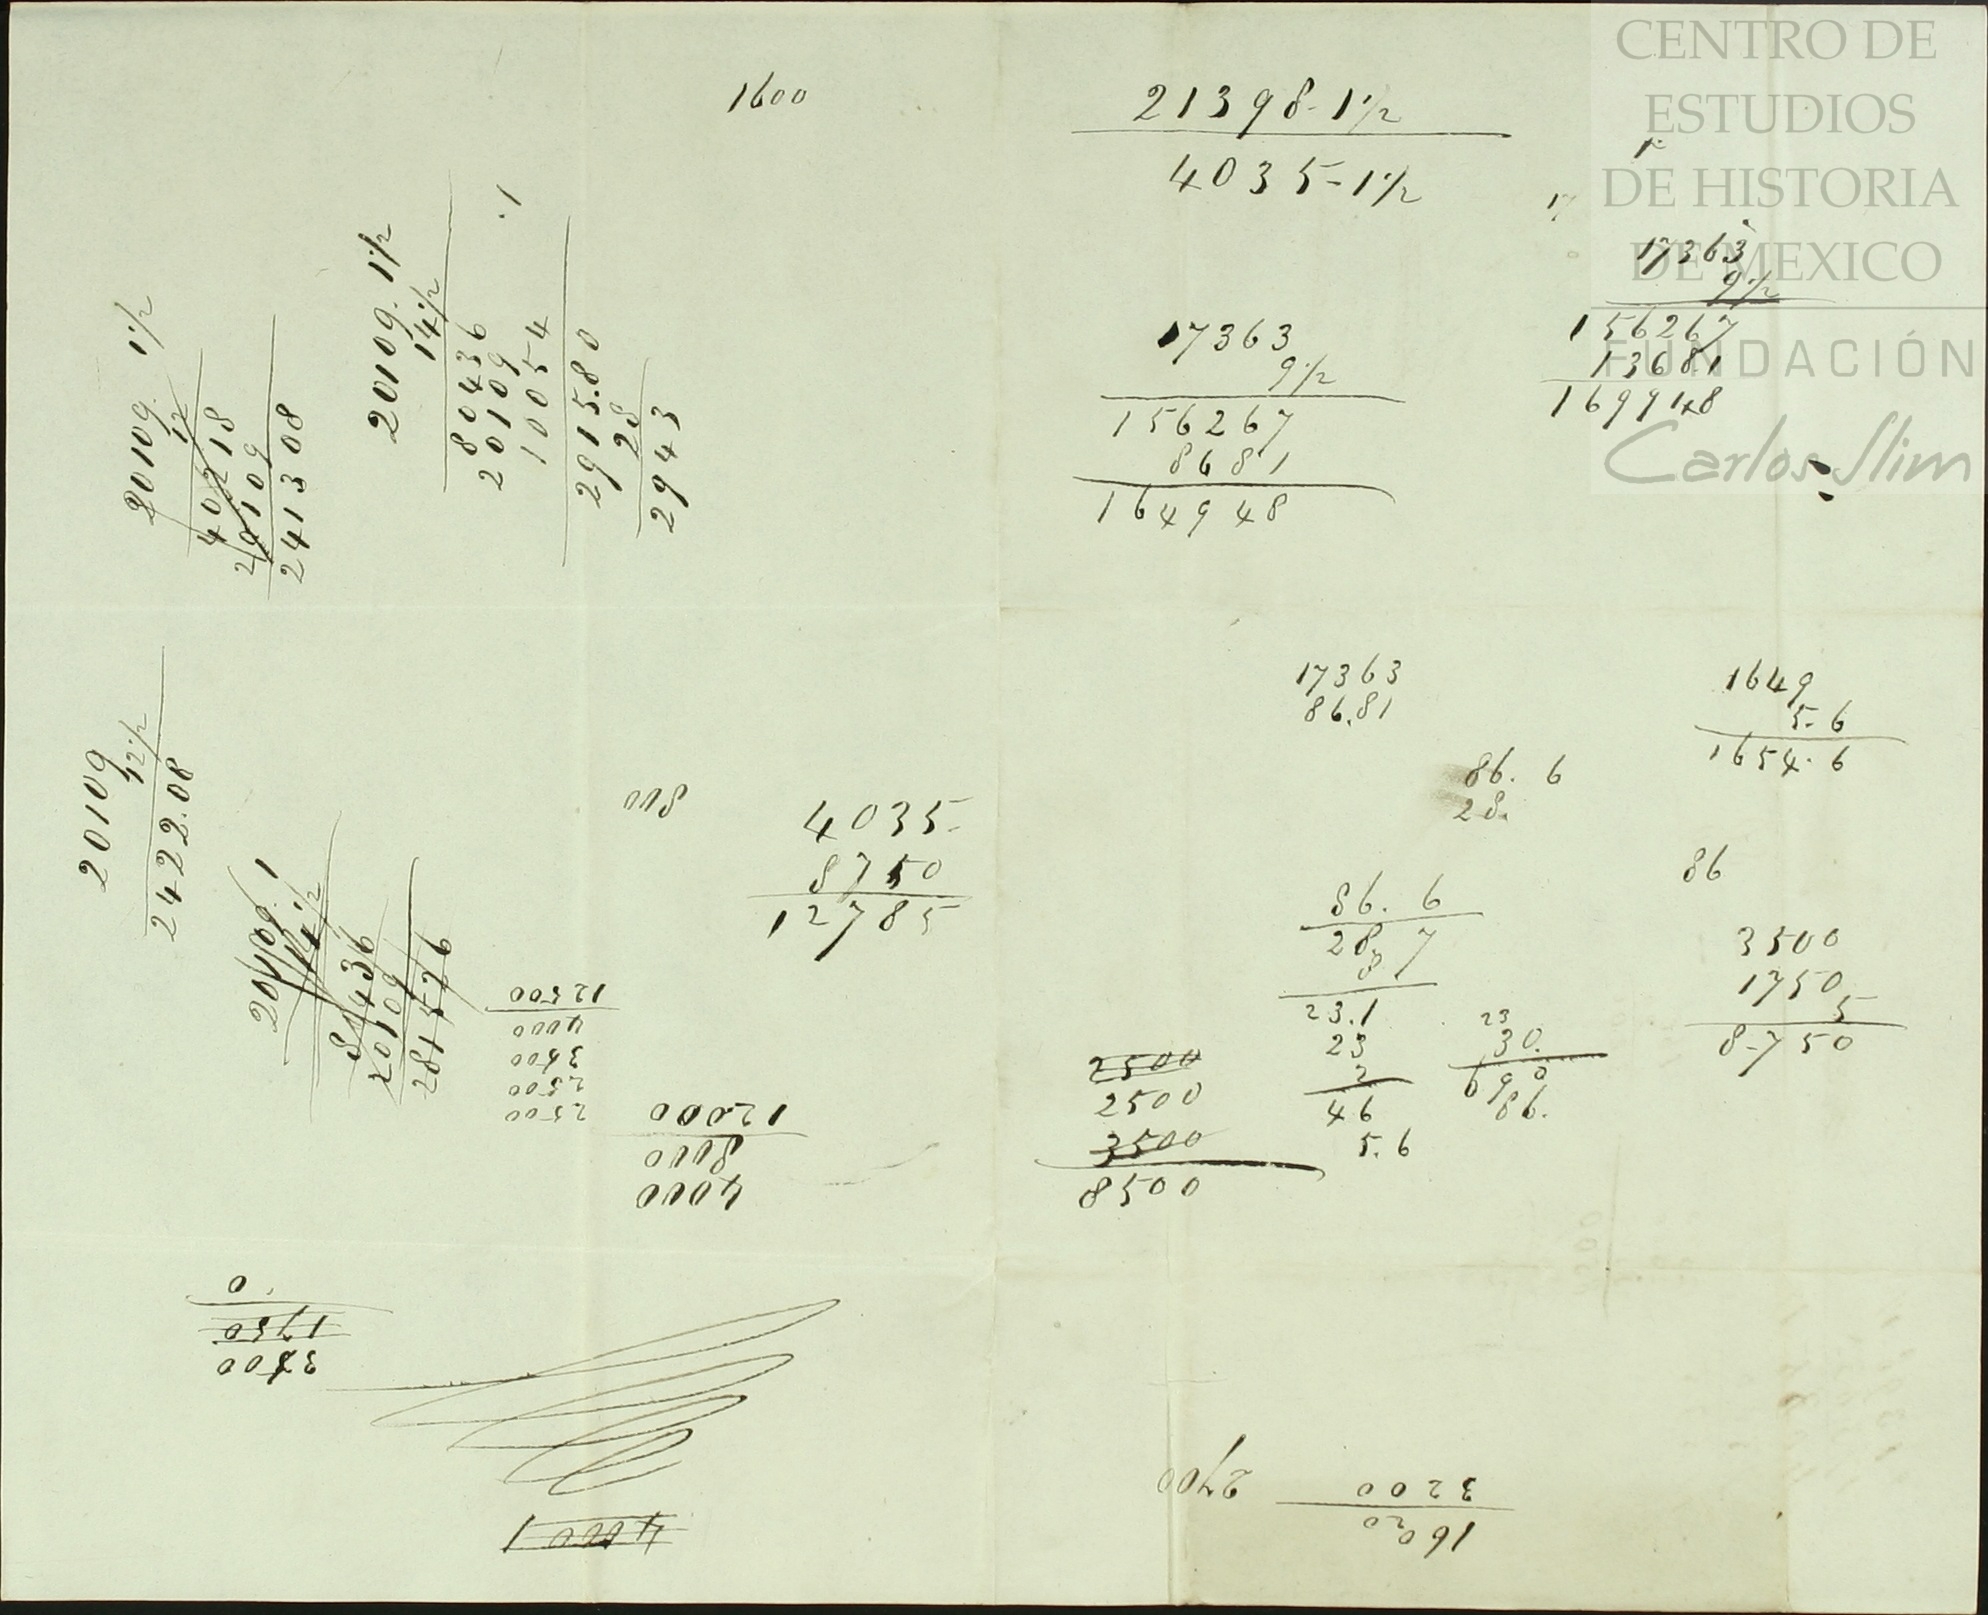 1600
21398-1½
4035-1½
17363
9½
156267
8681
164948
17363
9½
156267
13681
CENTRO DE
ESTUDIOS
DE HISTORIA
DE MEXICO
FUNDACIÓN
Carlos Slim
20109. 1½
12
40218
20109
241308
20109. 1½
14½
80436
20109
10054
2915.80
28
2943
20109
12½
2422.08
20109. 1
14½
80436
20109
281526
800
4035
8750
12785
17363
86.81
86. 6
28.
1649
5-6
1654.6
86
86. 6
28. 7
8
23.1
23
2
46
5.6
23
30.
690
86.
3500
1750
5
8-750
2500
2500
3500
8500
2500
2500
3500
4000
12500
4000
8000
12000
3500
1750
0
4000 1
2700
3200
1600